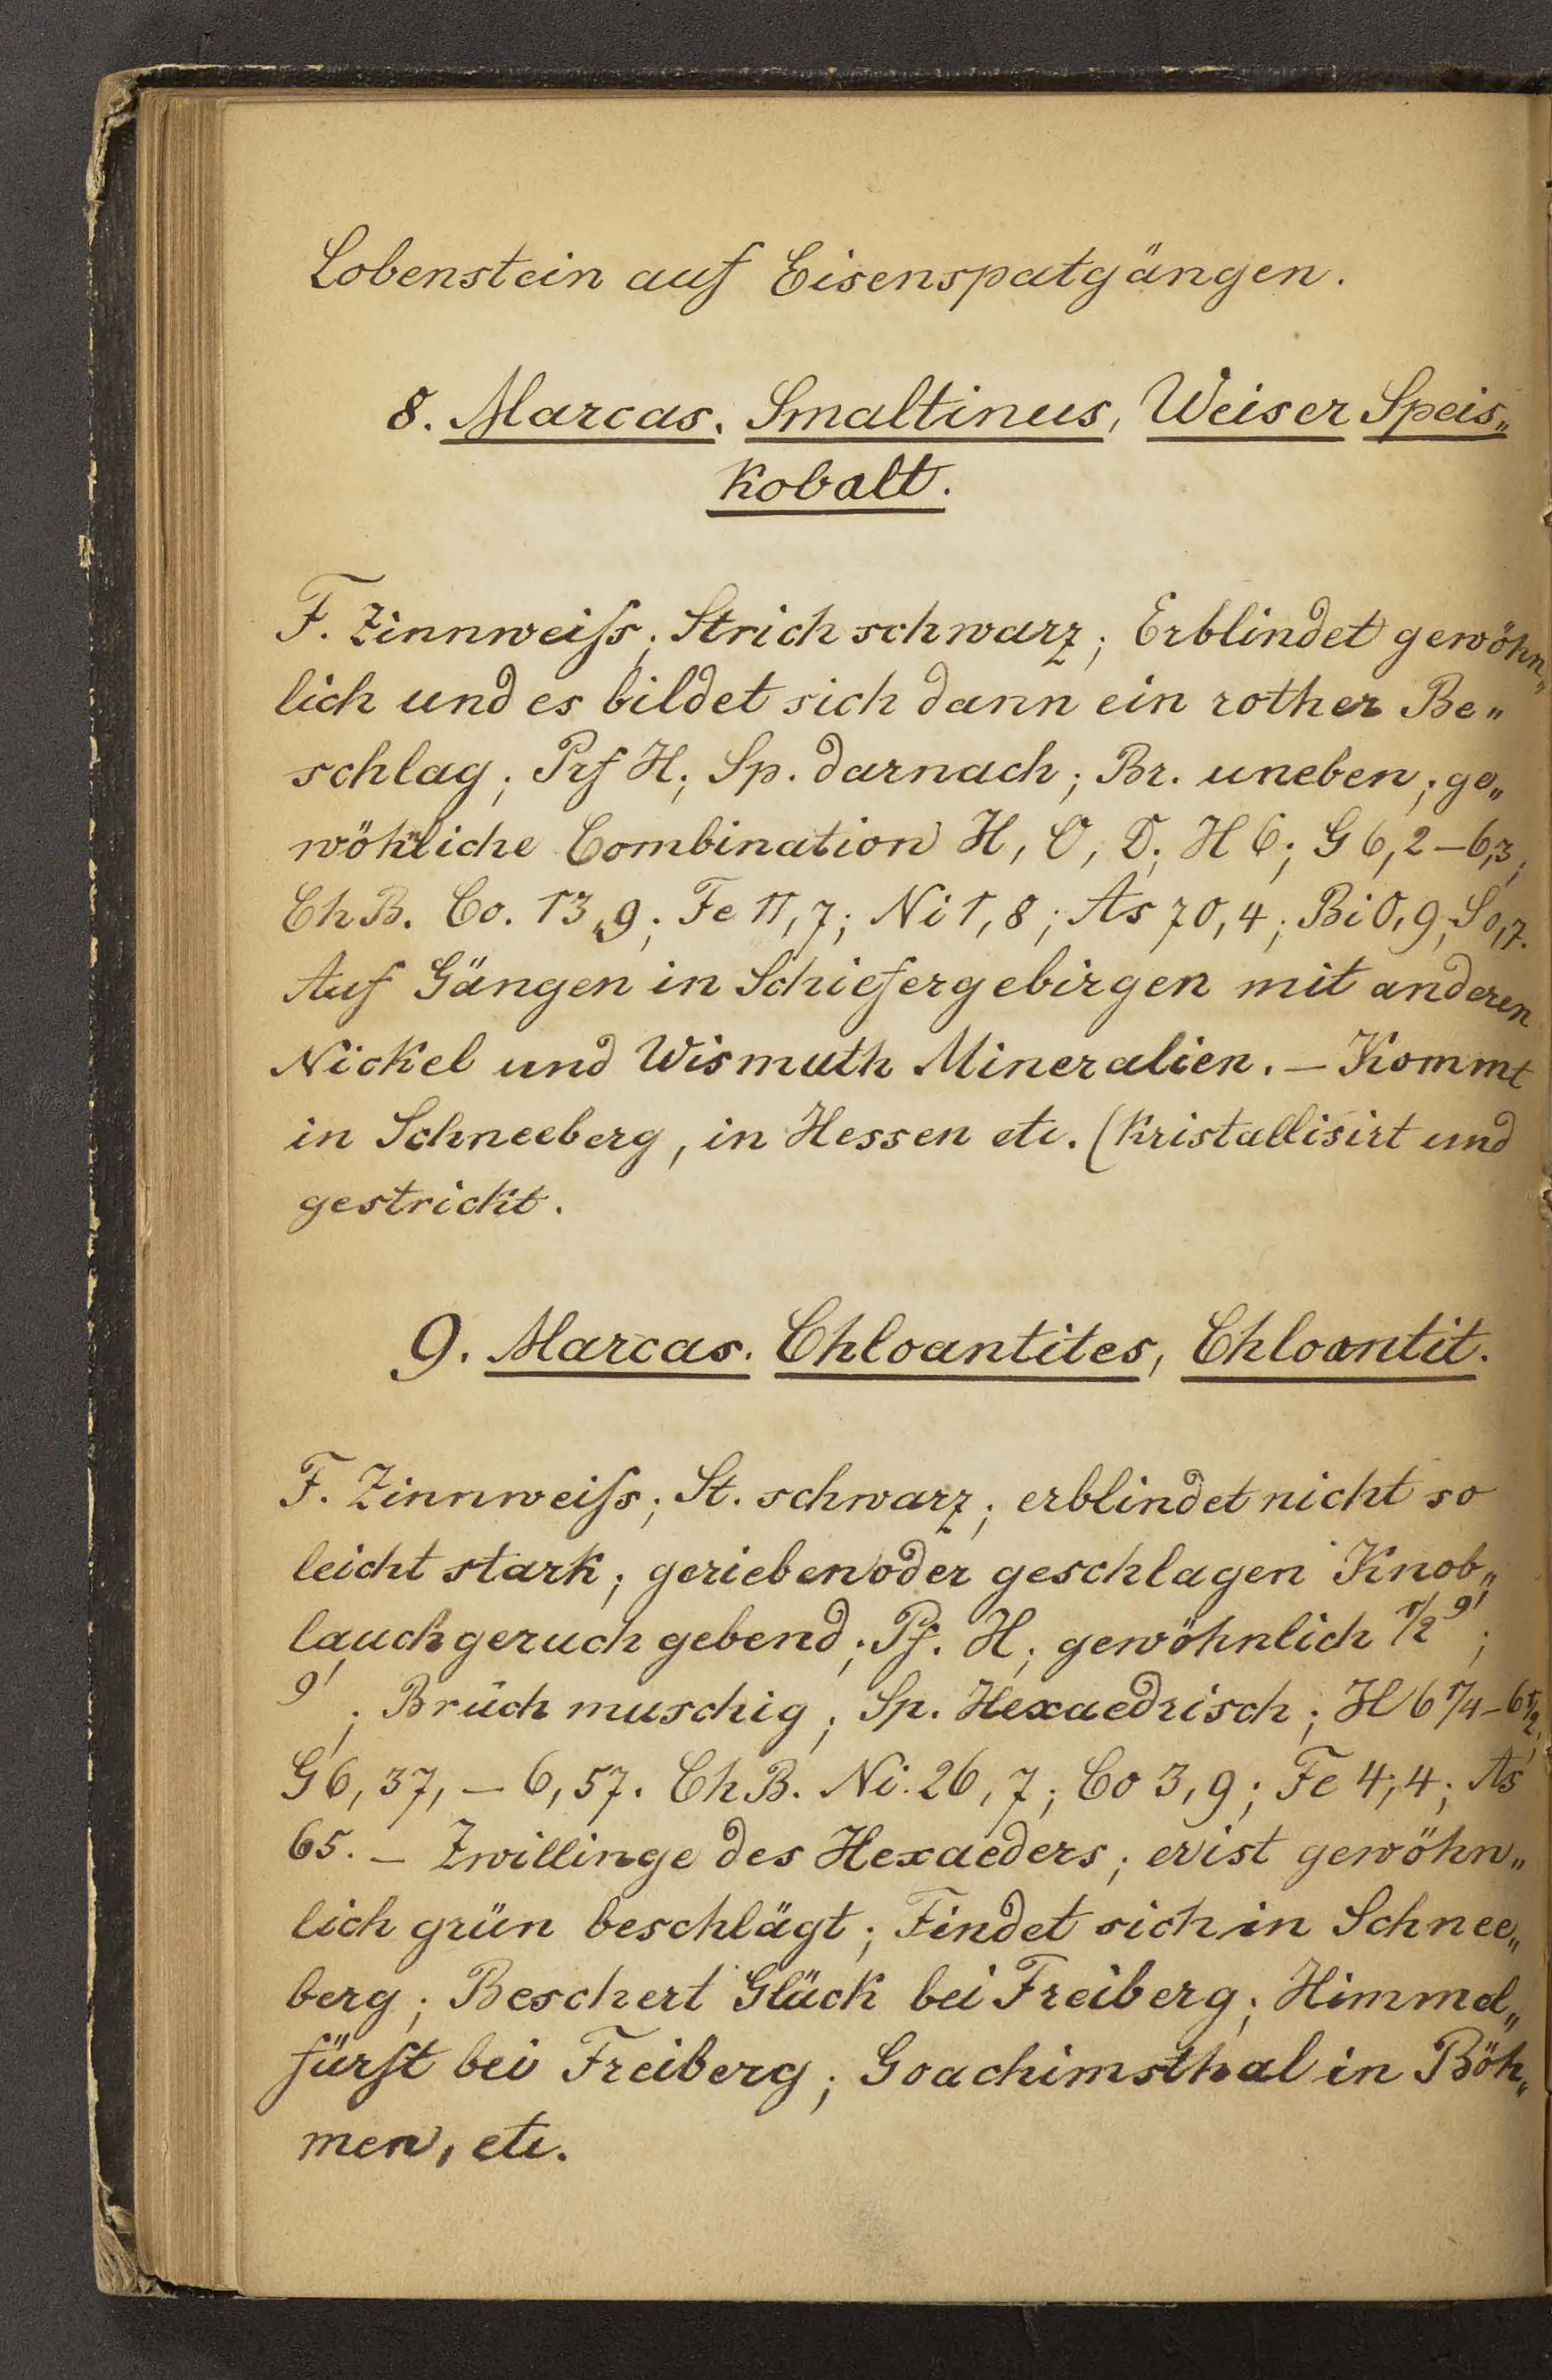 Lobenstein auf Eisenspatgängen.
8. Marcas. Smaltinus, Weiser Speis„
kobalt.
F. Zinnweiſs; Strich schwarz; Erblindet gewöhn„
lich und es bildet sich dann ein rother Be„
schlag; Prf H; Sp. darnach; Br. uneben; ge„
wöhnliche Combination H, O, D; H 6; G 6,2–6,3;
Ch B. Co. 13,9; Fe 11,7; Ni 1,8; As 70,4; Bi 0,9; S 0,7.
Auf Gängen in Schiefergebirgen mit anderen
Nickel und Wismuth Mineralien. – Kommt
in Schneeberg, in Hessen etc. (Kristallisirt und
gestrickt.
9. Marcas. Chloantites, Chloantit.
F. Zinnweiſs; St. schwarz; erblindet nicht so
leicht stark; gerieben oder geschlagen Knob„
lauchgeruch gebend; Pf. H; gewöhnlich 1/2 9';
9'; Brŭch muschig; Sp. Hexaedrisch; H 6 1/4–6 1/2;
G 6,37,–6,57. Ch B. Ni. 26,7; Co 3,9; Fe 4,4; As
65. – Zwillinge des Hexaeders; er ist gewöhn„
lich grün beschlägt; Findet sich in Schnee„
berg; Beschert Glück bei Freiberg; Himmel„
fürſt bei Freiberg; Goachimsthal in Böh„
men, etc.